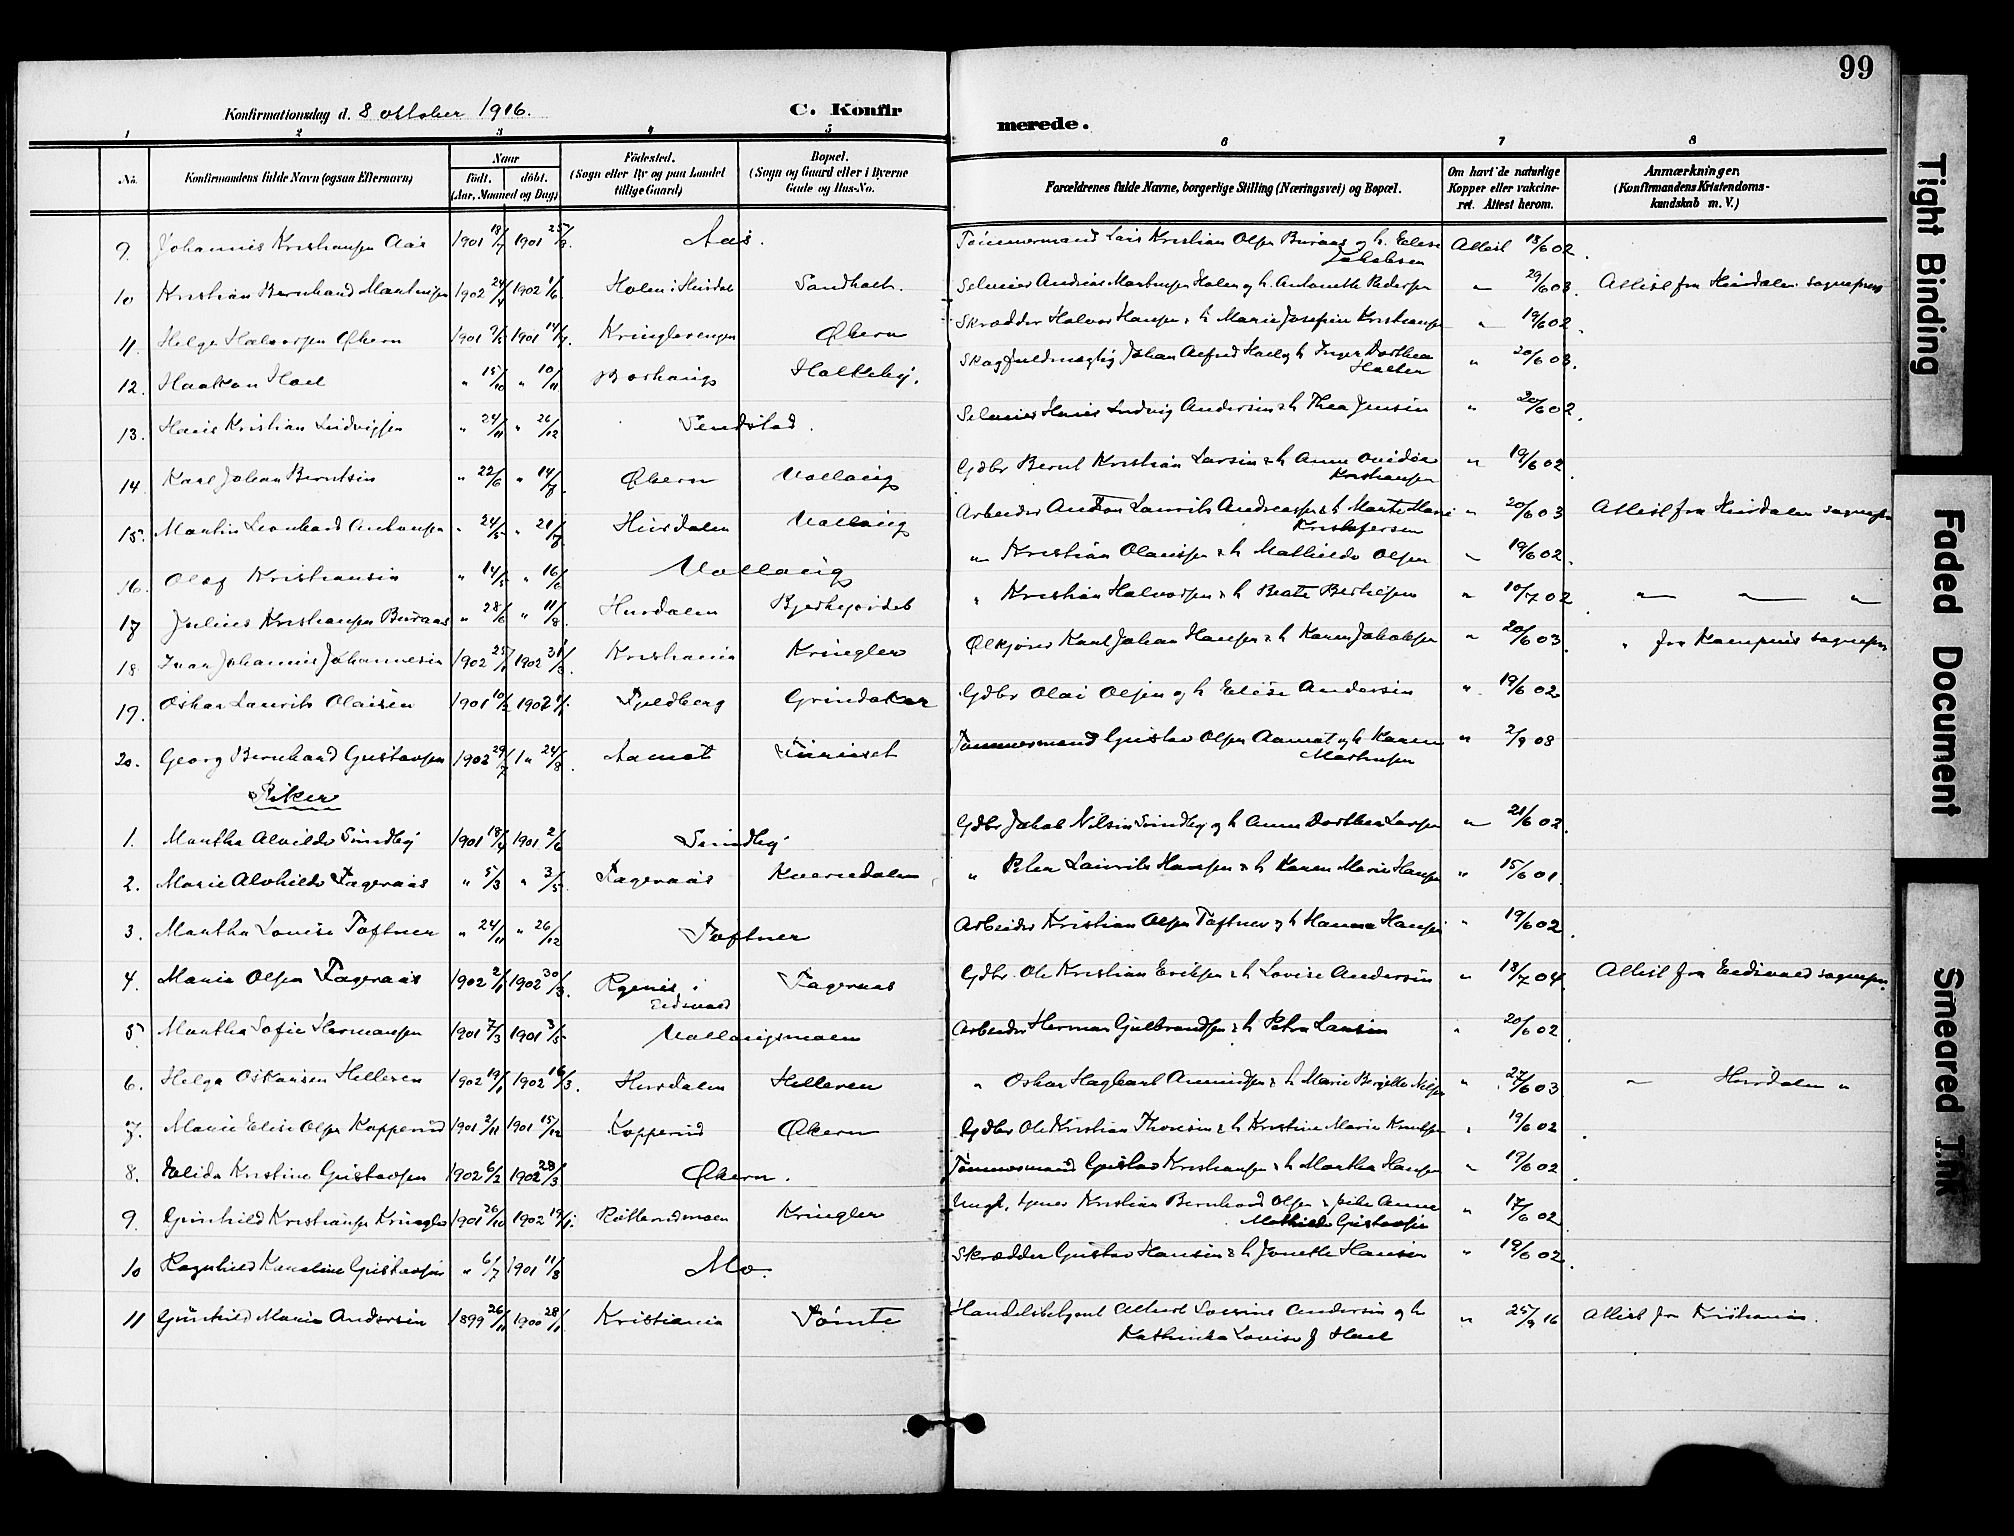 99
Konfirmationsdag d. 8 oktober 1916. C. Konfirmerede.
1 2 3 4 5 6 7 8
No. Konfirmandens fulde Navn (ogsaa Efternavn) Naar født. døbt. (Aar, Maaned og Dag) Fødested. (Sogn eller By og paa Landet tillige Gaard) Bopæl. (Sogn og Gaard eller i Byerne Gade og Hus-No. Forældrenes fulde Navne, borgerlige Stilling (Næringsvei) og Bopæl. Om havt de naturlige Kopper eller vakcineret. Attest herom. Anmærkninger. (Konfirmandens Kristendomskundskab m. V.)
9. Johannes Kristiansen Aas 1901 18/7 1901 25/8. Aas. Tømmermand Lars Kristian Olsen Buraas og h. Elise Jakobsen Attest 18/6 02.
10 Kristian Bernhard Martinsen 1902 24/4 1902 1/6. Holen i Hurdal Sandholt. Selveier Andreas Martinsen Holen og h. Antonette Pedersen " 29/6 03. Attest fra Hurdalen sogneprest
11. Helge Halvorsen Økern 1901 2/5 1901 14/7. Kringlerengen Økern Skrædder Halvor Hansen & h Marie Josefine Kristiansen " 19/6 02.
12. Haakon Hoel " 15/10 " 10/11 Borhaug Holkeby. Skogfuldmægtig Johan Alfred Hoel og h Inger Dorthea Holter " 20/6 03.
13. Hans Kristian Ludvigsen " 24/11 " 26/12 Tendstad. Selveier Hans Ludvig Andersen & h Thea Jensen " 20/6 02.
14. Karl Johan Berntsen " 22/6 " 14/7. Økern Vollaug Gdbr Bernt Kristian Larsen & h Anne Ovidia Kristiansen " 19/6 02.
15. Martin Leonhard Antonsen " 24/5 " 21/7. Hurdalen Vollaug Arbeider Anton Laurits Andreassen & h Marte Marie Kristofersen " 20/6 03 Attest fra Hurdalen sognepr
16. Olaf Kristiansen " 14/5 " 16/6 Vollaug " Kristian Olaussen & h Mathilde Olsen " 19/6 02.
17 Julius Kristiansen Buraas " 28/6 " 11/8. Hurdalen Bjerkejordet " Kristian Halvorsen & h Beate Bertilsen " 10/7 02. " " "
18. Ivar Johannes Johannesen 1902 25/1 1902 31/3. Kristiania Kringler Ølkjører Karl Johan Hansen & h Karen Jakobsen " 20/6 03. " fra Kampens sognepr
19. Oskar Laurits Olaisen 1901 10/12 1902 1/1 Fjeldberg Grindaker Gdbr Olai Olsen og h Elise Andersen " 19/6 02
20. Georg Bernhard Gustavsen 1902 29/7 1" 24/8. Aamot Finiset Tømmermand Gustav Olsen Aamot og h Karen Martinsen " 2/9 03
Piker
1. Martha Alvilde Sundby 1901 18/4 1901 2/6 Sundby Gdbr Jakob Nilsen Sundby og h Anne Dorthea Larsen " 21/6 02.
2. Marie Alvhilde Fageraas " 5/3 " 3/5. Fageraas Kvernedalen " Peter Laurits Hansen & h Karen Marie Hansen " 15/6 01.
3. Martha Lovise Toftner " 24/11 " 26/12 Toftner Arbeider Kristian Olsen Toftner & h Hanna Hansen " 19/6 02.
4. Maria Olsen Fageraas 1902 2/1 1902 30/3. Rynes i Eidsvold Fageraas Gdbr. Ole Kristian Eriksen & h Lovise Andersen " 18/7 04. Attest fra Eidsvold sognepr.
5 Martha Sofie Hermansen 1901 7/3 1901 3/5 Vollaugsmoen Arbeider Herman Gulbrandsen & h Petra Larsen " 20/6 02.
6. Helga Oskarsen Helleren 1902 19/1 1902 16/3. Hurdalen Helleren " Oskar Hagbart Amundsen & h Marie Bergitte Nilsen " 27/6 03 " Hurdalen "
7. Marie Elise Olsen Kopperud 1901 2/11 1901 15/12 Kopperud Økern Gdbr Ole Kristian Thoresen & h Kristine Marie Knutsen " 19/6 02.
8. Valida Kristine Gustavsen 1902 6/2 1902 28/3 Økern. Tømmermand Gustav Kristiansen & h Martha Hansen " 19/6 02.
9. Gunhild Kristiansen Kringler 1901 26/10 1902 19/1. Rotterudmoen Kringler Ungk. tjener Kristian Bernhard Olsen & pike Anne Mathilde Gustavsen " 17/6 02.
10 Ragnhild Karoline Gustavsen " 6/7 1901 11/8 Mo. Skrædder Gustav Hansen & h Jonette Hansen " 19/6 02.
11 Gunhild Maria Andersen 1899 26/11 1900 28/1. Kristiania Tømte Handelsbetjent Albert Lavrins Andersen og h Kathinka Lovise f Hoel " 25/9 16 Attest fra Kristiania.
Tight Binding
Faded Document
Smeared Ink